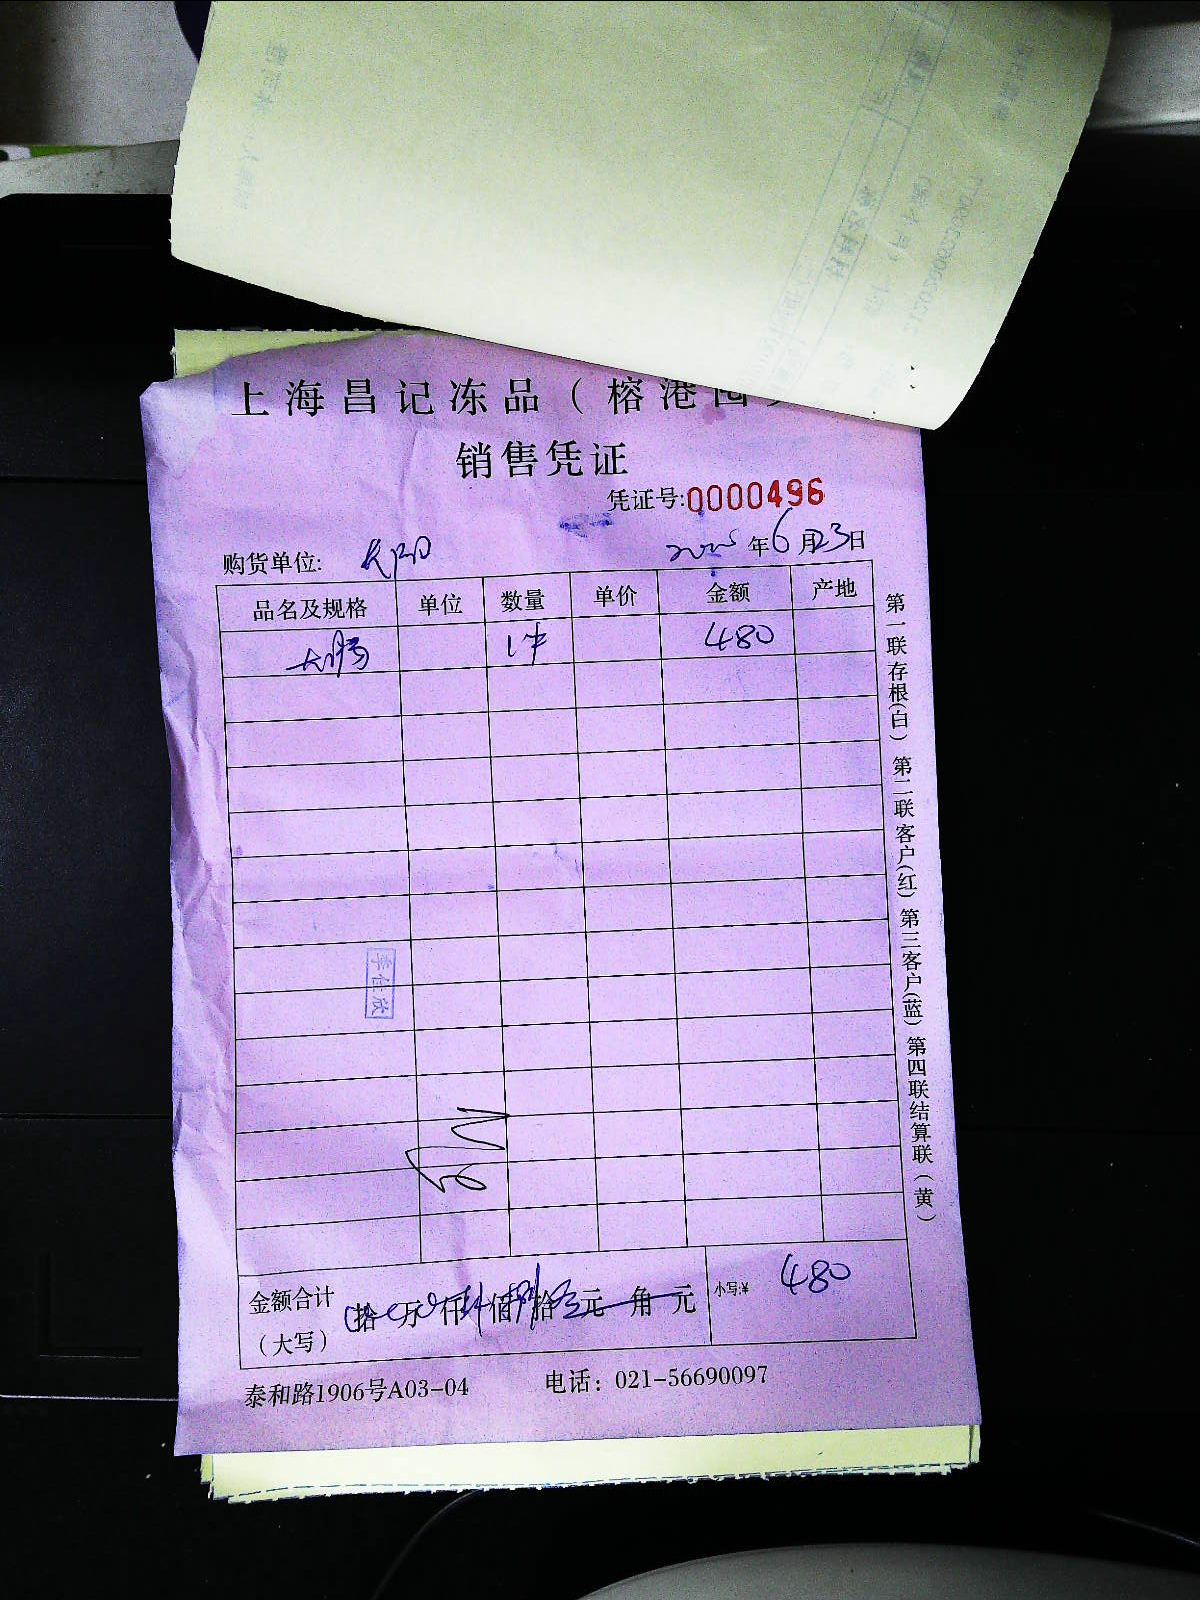 上海昌记冻品（榕港
销售凭证
凭证号:0000496
购货单位:
2025年6月23日
品名及规格 单位 数量 单价 金额 产地
大肠 1件 480
李仕欣
金额合计（大写） 拾 万 仟 佰 拾 元 角 元 小写:¥ 480
泰和路1906号A03-04 电话：021-56690097
第一联存根(白) 第二联客户(红) 第三客户(蓝) 第四联结算联(黄)